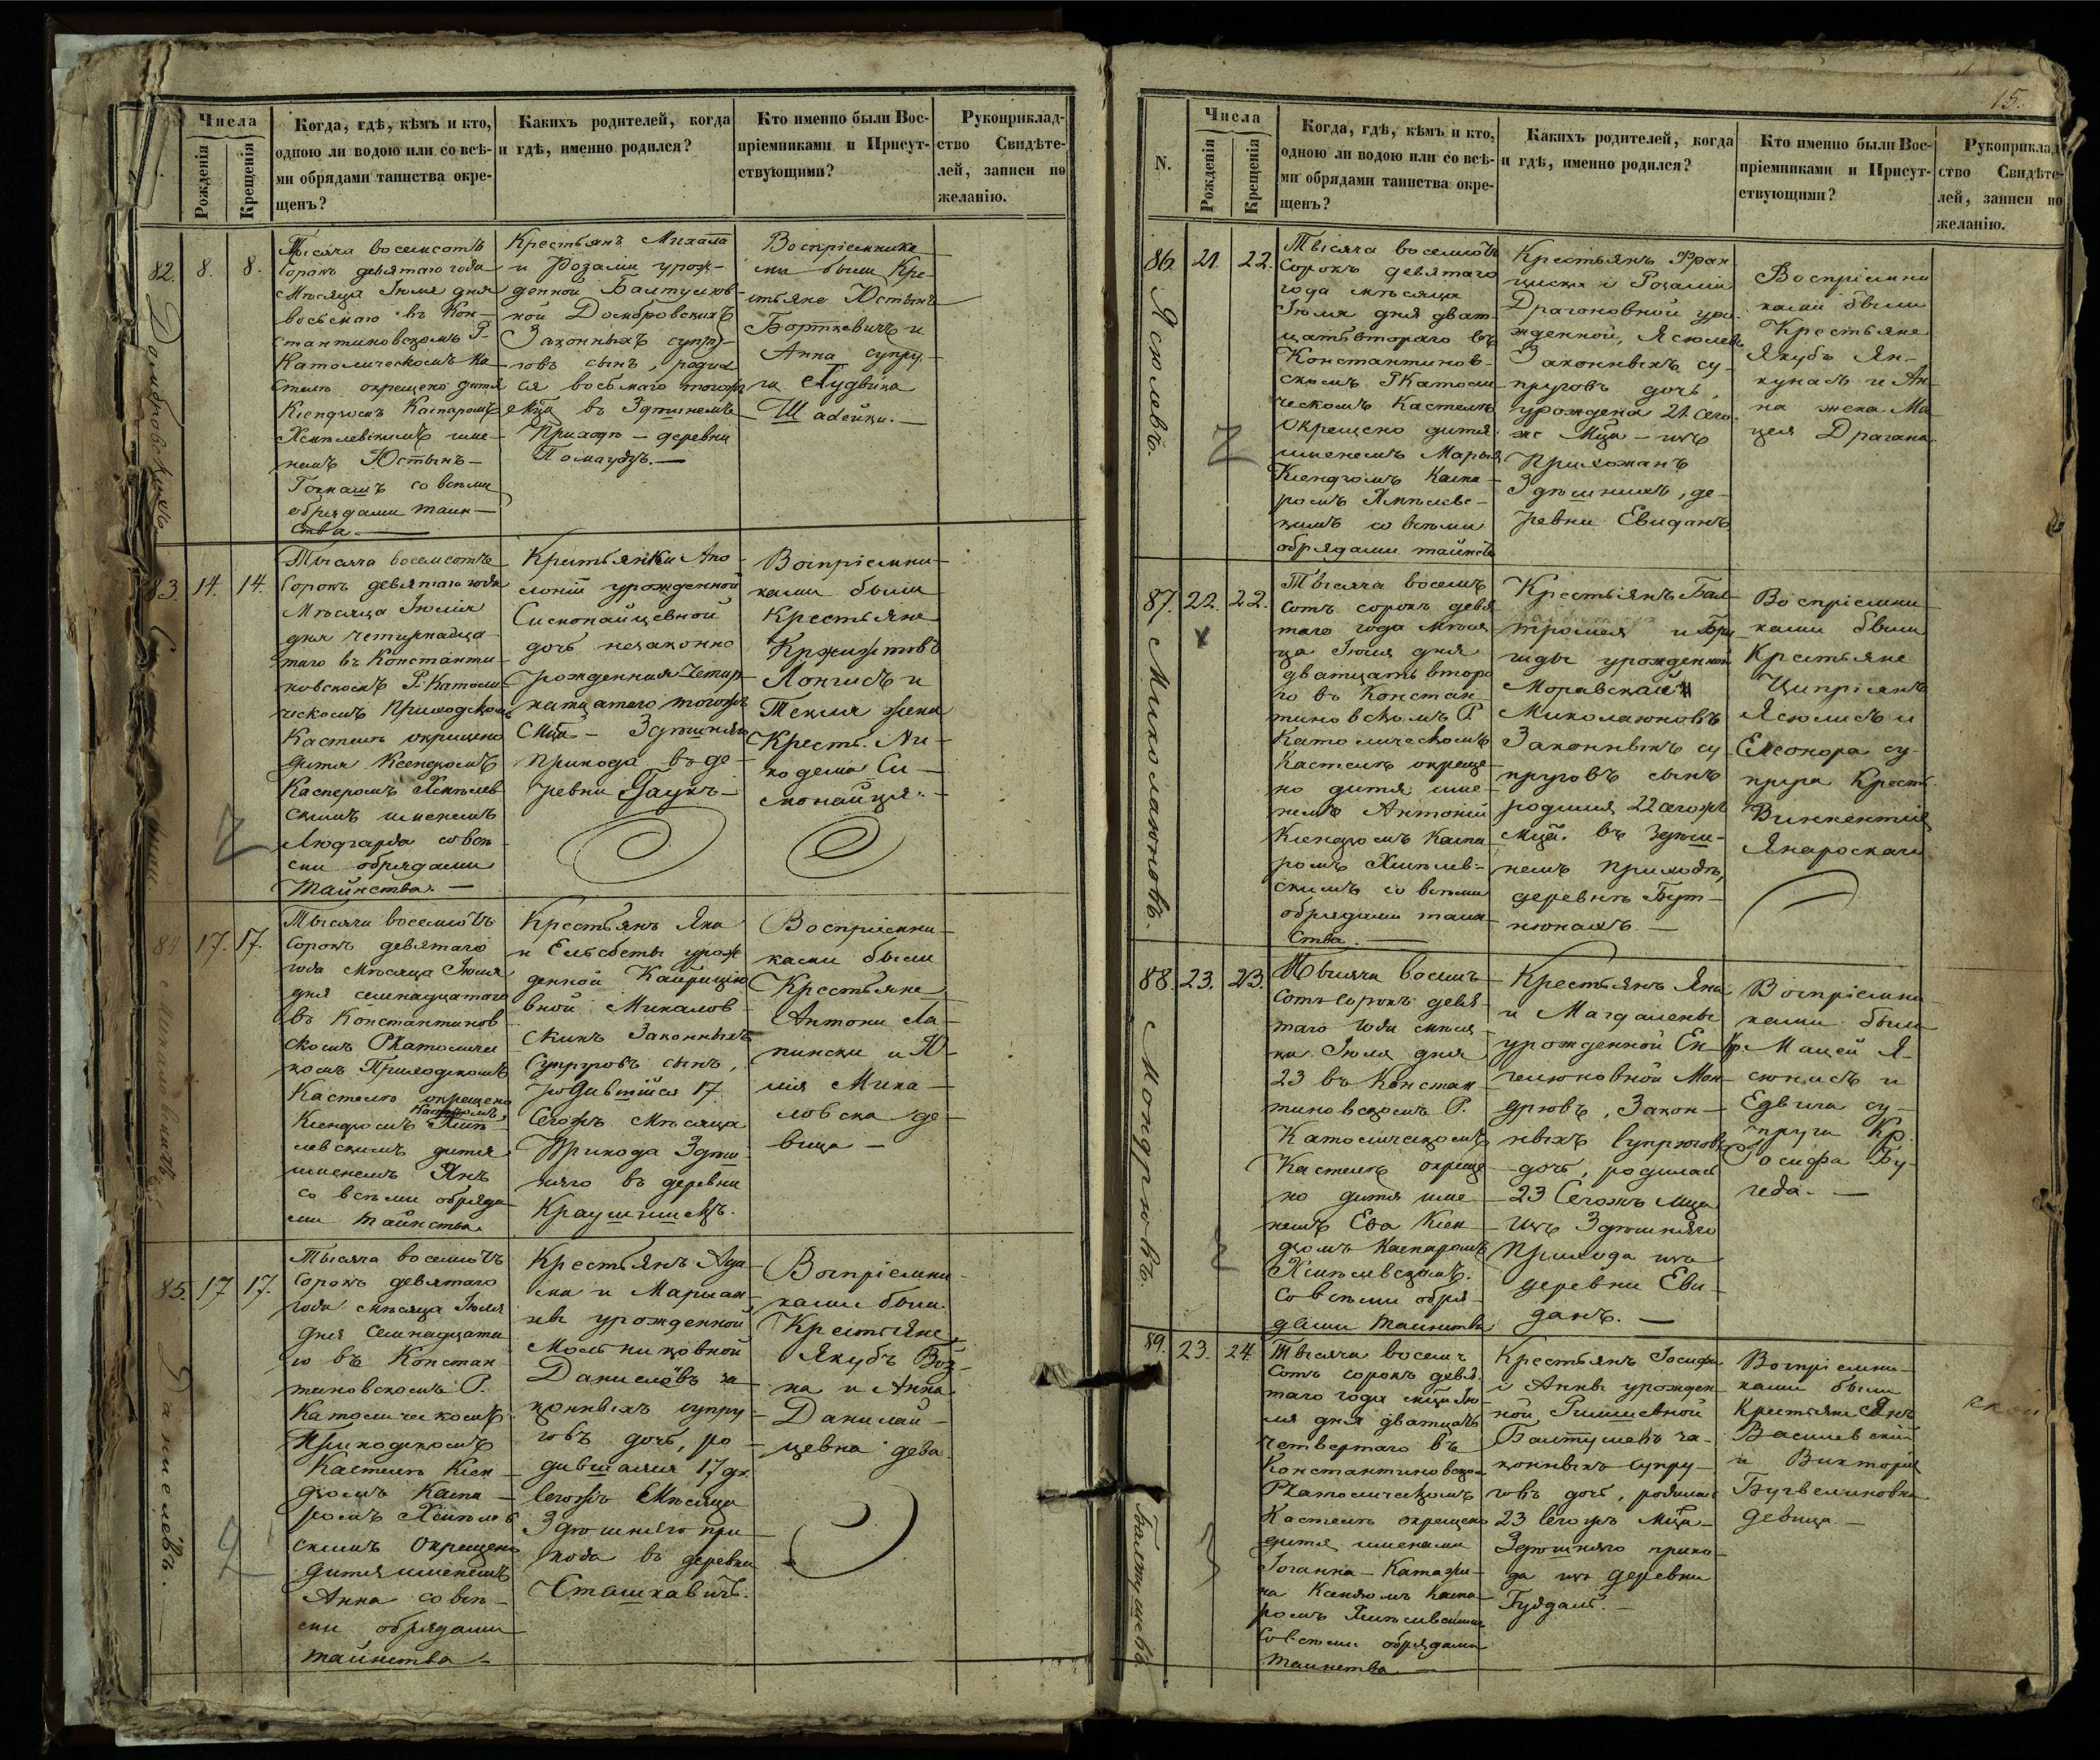 N.
Числа
Рожденія
Крещенія
Когда, гдѣ, кѣмъ и кто,
одною ли водою или со всѣ-
ми обрядами таинства окре-
щенъ?
Какихъ родителей, когда
и гдѣ, именно родился?
Кто именно были Вос-
пріемниками и Присут-
ствующими?
Рукоприклад-
ство Свидѣте-
лей, записи по
желанію.
82.
8.
8.
Домбровскихъ
Тысяча восемсотъ
сорокъ девятаго года
мѣсяца Іюля дня
восьмаго въ Кон-
стантиновскомъ Р.
Католическомъ Ко-
стелѣ окрещено дитя
Ксендзомъ Каспаромъ
Хмѣлевскимъ име-
немъ Юстынъ
со всѣми
обрядами таин-
ства
Крестьянъ Михала
и Розаліи урож-
денной Балтушов-
ной Домбровскихъ
Законныхъ супру-
говъ сынъ, родил
ся восьмаго тогожъ
мца въ Здѣшнемъ
Приходѣ - деревни
Воспріемника-
ми были Кре-
стьяне Юстынъ
Борткевичъ и
Анна супру-
га Лудвика
Шадейки.
83.
14.
14.
Тысяча восемсотъ
сорокъ девятаго года
Мѣсяца Іюлія
дня четырнадца-
таго въ Константи-
новскомъ Р. Католи-
ческомъ Приходскомъ
Костелѣ окрещено
дитя Ксендзомъ
Касперомъ Хмѣлев-
скимъ именемъ
Людгарда со всѣ-
ми обрядами
таинства.
Крестьянки Апо-
лоніи урожденной
дочь незаконно
рожденная четыр-
натцатаго тогожъ
мца - Здѣшняго
прихода въ де-
ревни
Воспріемни-
ками были
Крестьяне
Кржиштовъ
Лонгисъ и
Текля жена
Крест. Ни-
кодема Си-
монайця.
84
17.
17.
Михаловскихъ
Тысяча восемсотъ
сорокъ девятаго
года мѣсяца Іюля
дня семнадцатаго
въ Константинов
скомъ РКатоличес
комъ Приходскомъ
Костелѣ окрещено
Каспаромъ
Ксендзомъ Хмѣ-
левскимъ дитя
именемъ Янъ
со всѣми обряда
ми таинства
Крестьянъ Яна
и Ельсбеты урож
денной
вной Михалов-
скихъ Законныхъ
Супруговъ сынъ,
родившійся 17.
Сегожъ Мѣсяца
Прихода Здѣш
няго въ деревни
Воспріемни-
ками были
Крестьяне
Антони Ла-
пински и Ю-
лія Миха-
ловска де-
вица -
85.
17
17.
Данилёвъ.
Тысяча восемсотъ
сорокъ девятаго
года мѣсяца Іюля
дня Семнадцата
го въ Констан-
тиновскомъ Р.
Католическомъ
Приходскомъ
Костелѣ Ксен-
дзомъ Каспа-
ромъ Хмѣлев
скимъ окрещено
дитя именемъ
Анна со всѣ-
ми обрядами
таинства.
Крестьянъ Ада
ма и Марыан-
ны урожденной
Мольниковной
Данилёвъ за
конныхъ супру-
говъ дочь, ро-
дившаяся 17 дн.
Сегожъ Мѣсяца
Здѣшняго при
хода въ деревни
Сташкавичъ.
Воспріемни-
ками были
Крестьяне
Якубъ Воз-
на и Анна
Данилай-
цевна дева.
15.
N.
Числа
Рожденія
Крещенія
Когда, гдѣ, кѣмъ и кто,
одною ли водою или со всѣ-
ми обрядами таинства окре-
щенъ?
Какихъ родителей, когда
и гдѣ, именно родился?
Кто именно были Вос-
пріемниками и Присут-
ствующими?
Рукоприклад-
ство Свидѣте-
лей, записи по
желанію.
86.
21.
22.
Ясюлевъ.
Тысяча восемсотъ
сорокъ девятаго
года мѣсяца
Іюля дня дват-
цать втораго въ
Константинов-
скомъ РКатоли
ческомъ Костелѣ
окрещено дитя
именемъ Марыя
Ксендзомъ Каспа-
ромъ Хмѣлевс-
кимъ со всѣми
обрядами таинств
Крестьянъ Фран
циска и Розаліи
Драгоновной уро-
жденной, Ясюлевъ
Законныхъ су-
пруговъ дочь,
урождена 21 сего-
жъ Мца - изъ
Прихожанъ
Здѣшнихъ, де-
ревни Евиданъ
Воспріемни
ками были
Крестьяне
Якубъ Ян-
кунасъ и Ан-
на жена Ма-
цея Драгана.
87.
22.
22.
Миколаюновъ.
Тысяча восемъ
сотъ сорокъ девя
таго года мѣся
ца Іюля дня
двадцать второ
го въ Констан
тиновскомъ Р.
Католическомъ
Костелѣ окреще-
но дитя име-
немъ Антоній
Ксендзомъ Каспа
ромъ Хмѣлев-
скимъ со всѣми
обрядами таин-
ства.
Крестьянъ Бал-
тромея и Бри
гиды урожденной
Моравской
Миколаюновъ
Законныхъ су
пруговъ сынъ
родился 22 сегожъ
мца. въ Здѣш-
немъ приходѣ,
деревнѣ Бут-
кюнахъ.
Воспріемни
ками были
Крестьяне
Ципріянъ
Ясюлисъ и
Елеонора су-
пруга Крест.
Винкентія
88.
23.
23.
Мондрювъ.
Тысяча восемъ
сотъ сорокъ девя-
таго года мѣся
ца Іюля дня
23 въ Констан
тиновскомъ Р.
Католическомъ
Костелѣ окреще
но дитя име-
немъ Ева Ксен
дзомъ Каспаромъ
Хмѣлевскимъ.
Со всѣми обря-
дами таинства
Крестьянъ Яна
и Магдалены
урожденной Ен-
гелюновной Мон-
дрювъ, Закон-
ныхъ Супруговъ
дочь, родилась
23 Сегожъ мца
изъ Здѣшняго
Прихода изъ
деревни Еви-
данъ.
Воспріемни
ками были
Кр Мацей Я-
сюнасъ и
Едвига су-
пруга Кр.
Іосифа
89.
23.
24.
Балтушевъ.
Тысяча восемъ
сотъ сорокъ девя-
таго года мца Ію-
ля дня дватцать
четвертаго въ
Константиновском
РКатолическомъ
Костелѣ окрещено
дитя именами
Іоганна - Катажи-
на Ксендзомъ Каспа-
ромъ Хмѣлевскимъ
со всѣми обрядами
таинства.
Крестьянъ Іосифа
и Анны урожден-
ной
Балтушевъ за-
конныхъ супру-
говъ дочь, родилась
23 Сегожъ Мца-
Здѣшняго прихо-
да изъ деревни
Воспріемни-
ками были
Крестьяне Янъ
Василевскій
и Викторія
девица.